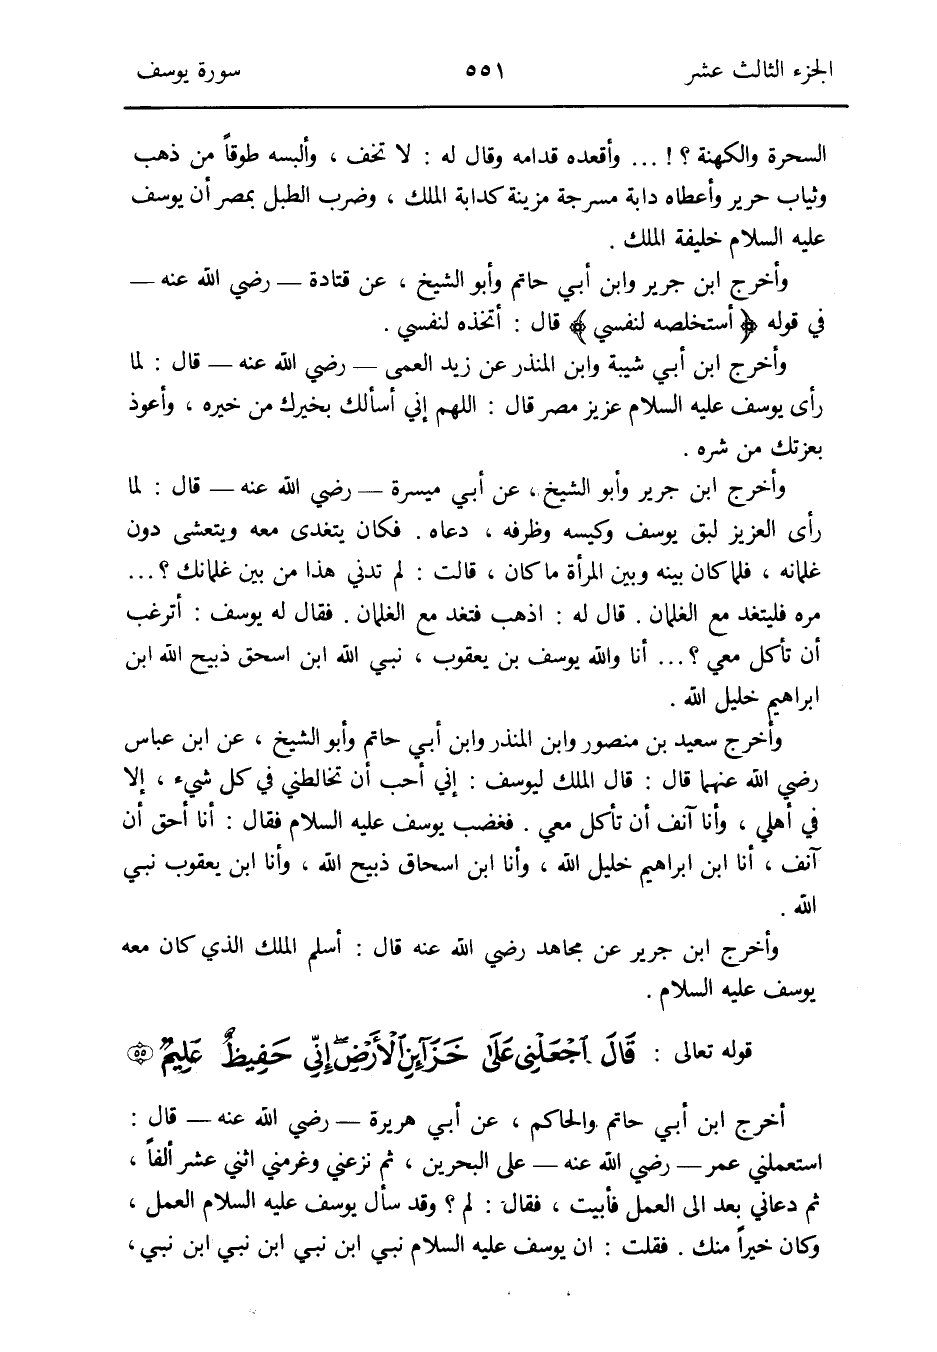 الجزء الثالث عشر ٥٥١ سورة يوسف
السحرة والكهنة ؟ ! ... وأقعده قدامه وقال له : لا تخف ، وألبسه طوقاً من ذهب
وثياب حرير وأعطاه دابة مسرجة مزينة كدابة الملك ، وضرب الطبل بمصر أن يوسف
عليه السلام خليفة الملك .
وأخرج ابن جرير وابن أبي حاتم وأبو الشيخ ، عن قتادة — رضي الله عنه —
في قوله ﴿ أستخلصه لنفسي ﴾ قال : أتخذه لنفسي .
وأخرج ابن أبي شيبة وابن المنذر عن زيد العمى — رضي الله عنه — قال : لما
رأى يوسف عليه السلام عزيز مصر قال : اللهم إني أسألك بخيرك من خيره ، وأعوذ
بعزتك من شره .
وأخرج ابن جرير وأبو الشيخ ، عن أبي ميسرة — رضي الله عنه — قال : لما
رأى العزيز لبق يوسف وكيسه وظرفه ، دعاه . فكان يتغدى معه ويتعشى دون
غلمانه ، فلما كان بينه وبين المرأة ما كان ، قالت : لم تدني هذا من بين غلمانك ؟ ...
مره فليتغد مع الغلمان . قال له : اذهب فتغد مع الغلمان . فقال له يوسف : أترغب
أن تأكل معي ؟ ... أنا والله يوسف بن يعقوب ، نبي الله ابن اسحق ذبيح الله ابن
ابراهيم خليل الله .
وأخرج سعيد بن منصور وابن المنذر وابن أبي حاتم وأبو الشيخ ، عن ابن عباس
رضي الله عنهما قال : قال الملك ليوسف : إني أحب أن تخالطني في كل شيء ، إلا
في أهلي ، وأنا آنف أن تأكل معي . فغضب يوسف عليه السلام فقال : أنا أحق أن
آنف ، أنا ابن ابراهيم خليل الله ، وأنا ابن اسحاق ذبيح الله ، وأنا ابن يعقوب نبي
الله .
وأخرج ابن جرير عن مجاهد رضي الله عنه قال : أسلم الملك الذي كان معه
يوسف عليه السلام .
قوله تعالى : قَالَ ٱجْعَلْنِى عَلَىٰ خَزَآئِنِ ٱلْأَرْضِۖ إِنِّى حَفِيظٌ عَلِيمٌ ۝٥٥
أخرج ابن أبي حاتم والحاكم ، عن أبي هريرة — رضي الله عنه — قال :
استعملني عمر — رضي الله عنه — على البحرين ، ثم نزعني وغرمني اثني عشر ألفاً ،
ثم دعاني بعد الى العمل فأبيت ، فقال : لم ؟ وقد سأل يوسف عليه السلام العمل ،
وكان خيراً منك . فقلت : ان يوسف عليه السلام نبي ابن نبي ابن نبي ابن نبي ،